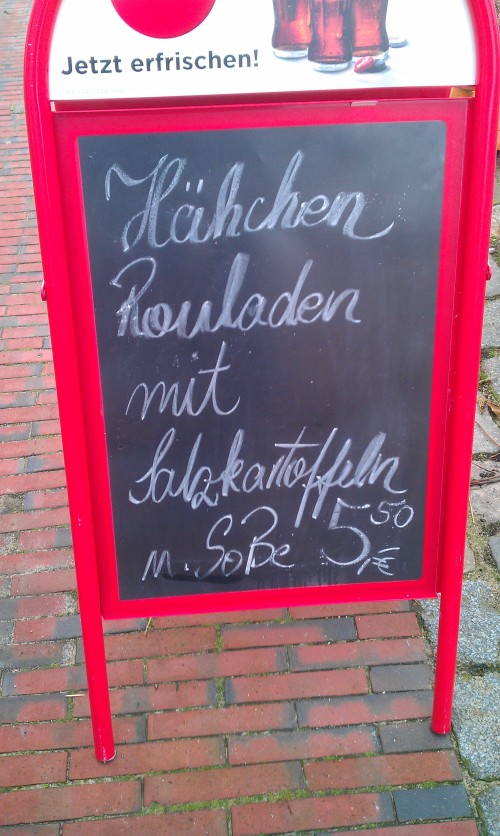 Jetzt erfrischen!
Hähchen
Rouladen
mit
Salzkartoffeln
m. Soße 5,50 €